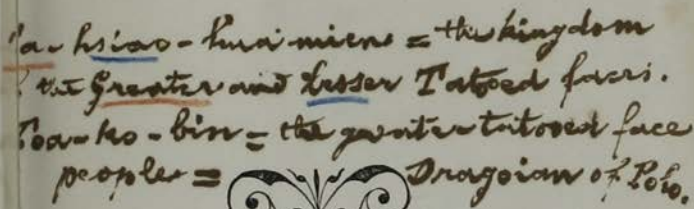 Ta-hsiao-hua-mien = the kingdom
of the Greater and Lesser Tatoed faces.
Toa-ko-bin = the greater tatooed face
people = Dragoian of Polo.